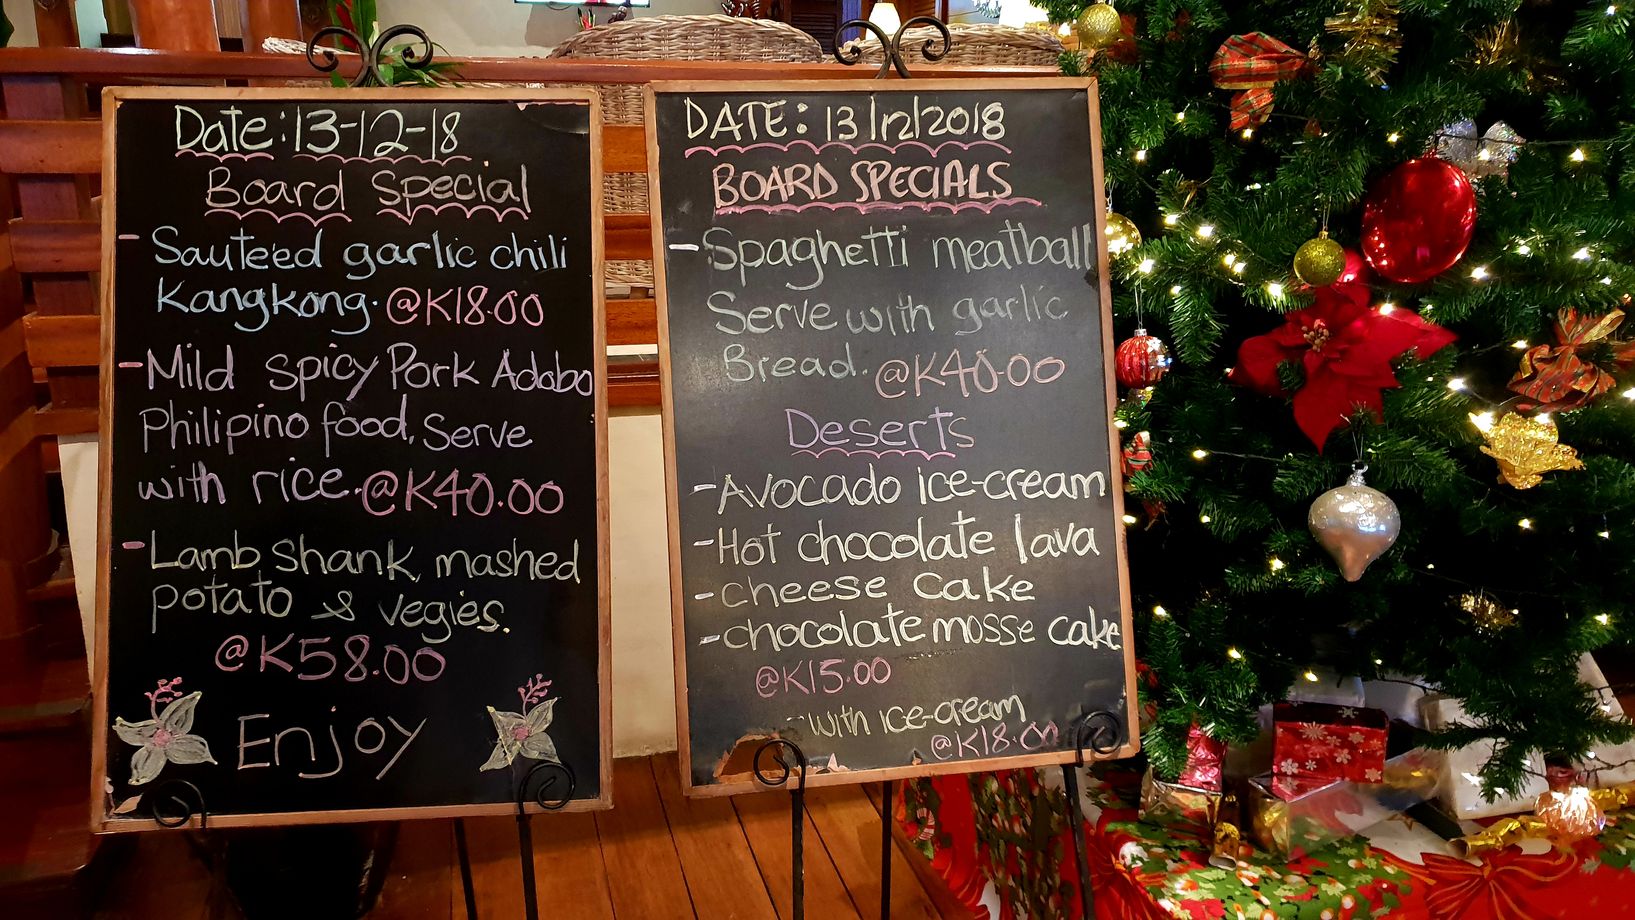 Date: 13-12-18
Board Special
- Sauteed garlic chili
Kangkong. @K18.00
- Mild spicy Pork Adobo
Philipino food, Serve
with rice. @K40.00
- Lamb Shank, mashed
potato & vegies.
@K58.00
Enjoy
DATE: 13/12/2018
BOARD SPECIALS
- Spaghetti meatball
Serve with garlic
Bread. @K40.00
Deserts
- Avocado ice-cream
- Hot chocolate lava
- cheese cake
- chocolate mosse cake
@K15.00
- with ice-cream
@K18.00